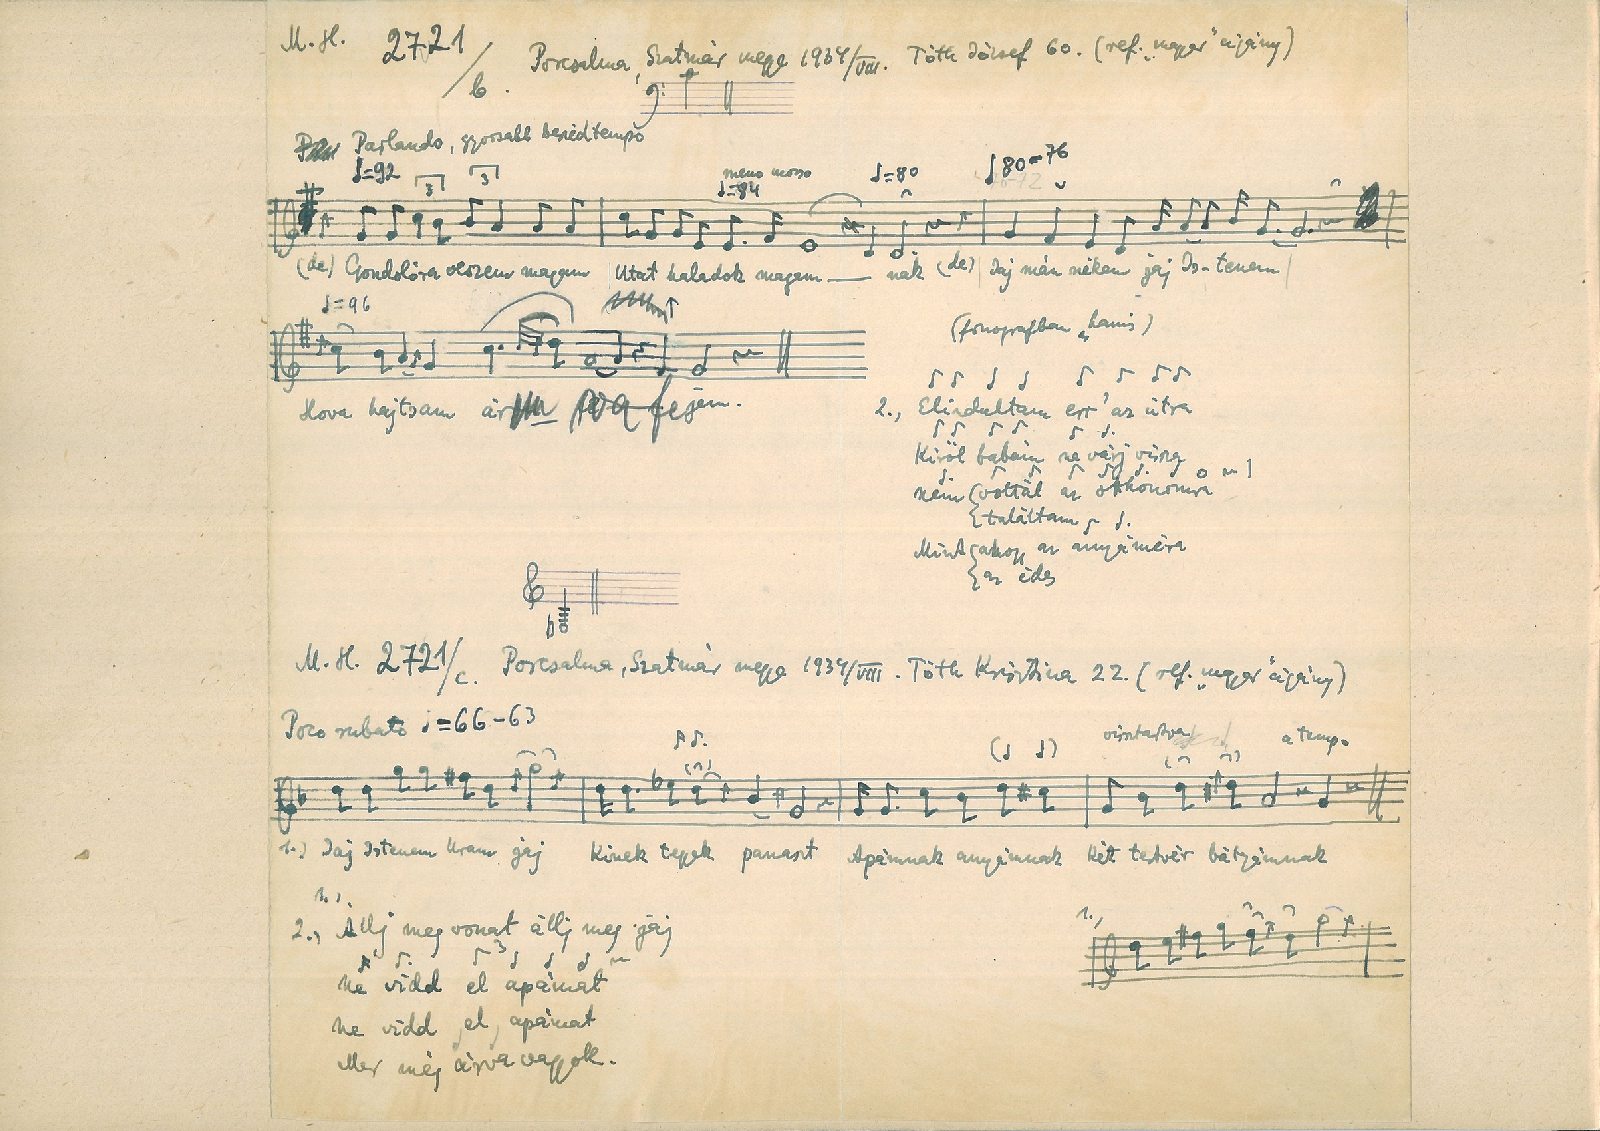 M. H. 2721/b. Porcsalma, Szatmár megye 1934/VIII. Tóth József 60. (ref. „magyar" cigány)
Parlando, gyorsabb beszédtempó
♩=92 3 3 meno mosso ♩=84 ♩=80 ♩80-76
(de) Gondolóra veszem magam Utat haladok magam — nak (de) Jaj már nékem jaj Is-tenem
♩=96
(fonografban „hamis)
Hova hajtsam ár fejem.
2., Elindultam err' az útra
Kiről babám ne várj vissza
nem {voltál az otthonomra
{találtam
Mint {ahogy az anyáméra
{az édes
M. H. 2721/c. Porcsalma, Szatmár megye 1934/VIII. Tóth Krisztina 22. (ref. „magyar" cigány)
Poco rubato ♩=66-63
visszatartva a tempo
1.) Jaj Istenem Uram jaj Kinek tegyek panaszt Apámnak anyámnak Két testvér bátyámnak
1.,
2., Állj meg vonat állj meg jáj
1.,
3
Ne vidd el apámat
Ne vidd el apámat
Mer még árva vagyok.